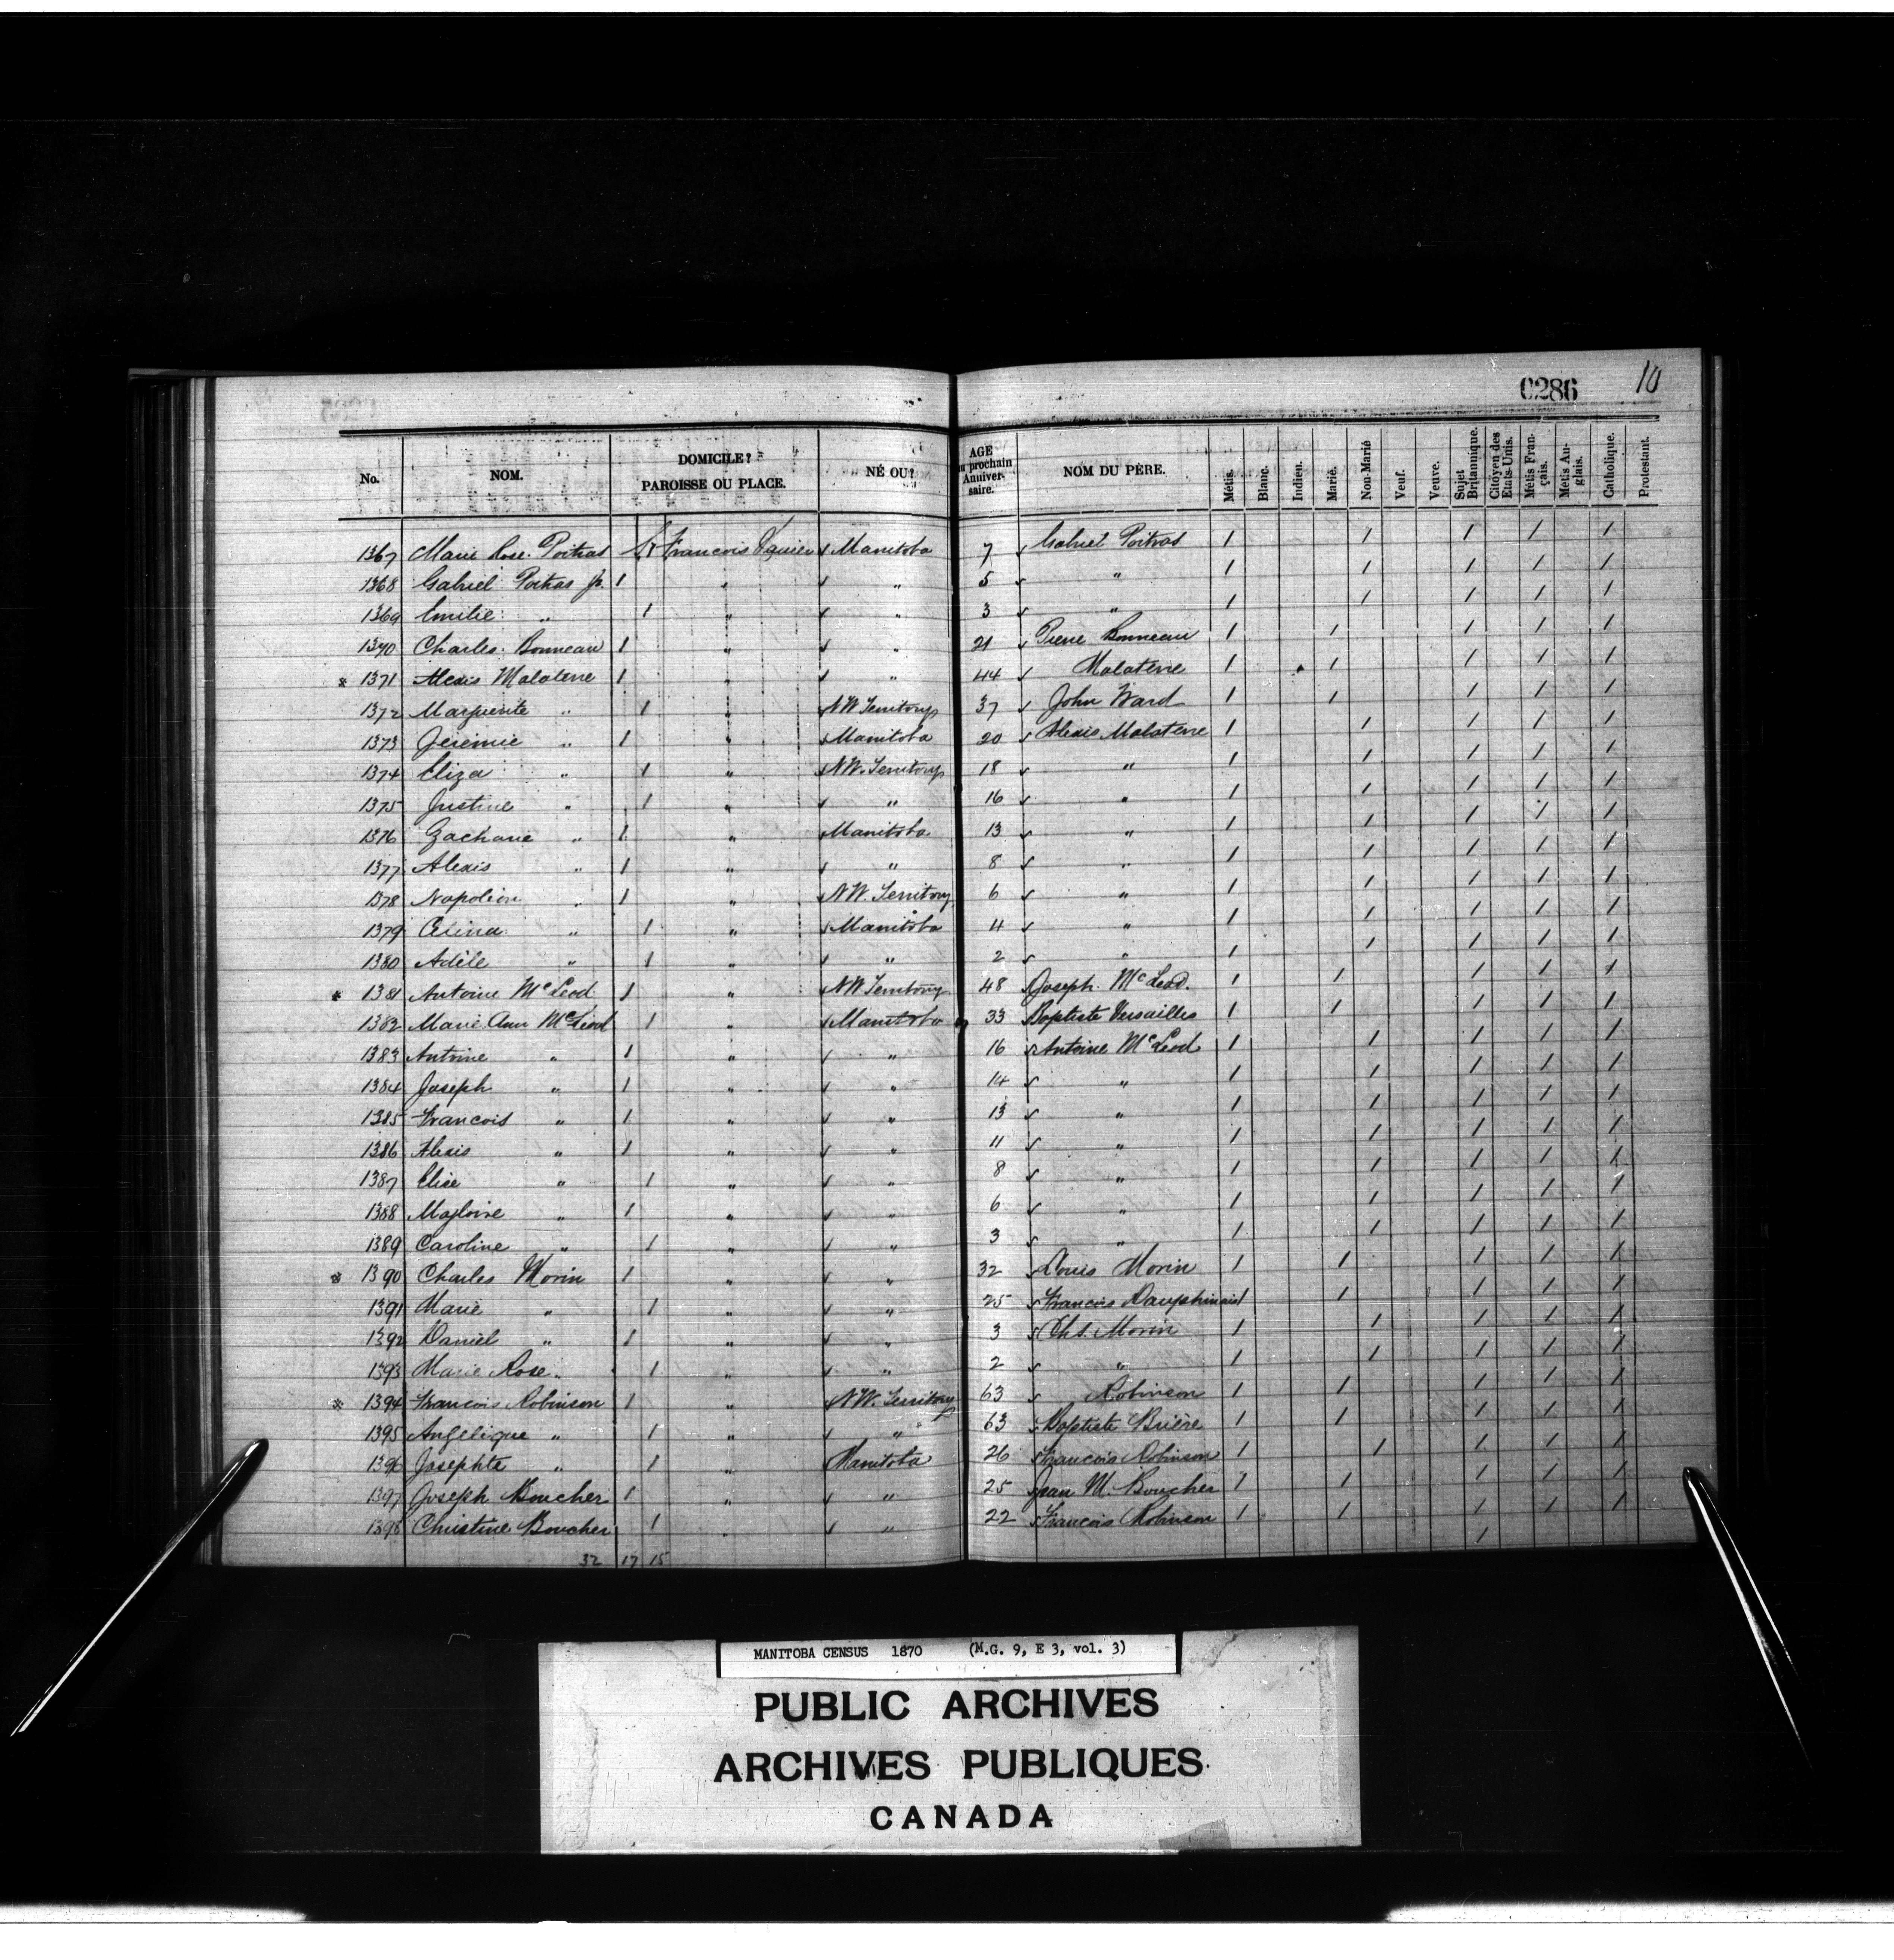 0286 10
No. NOM. DOMICILE? PAROISSE OU PLACE. NÉ OU? AGE au prochain Anniversaire. NOM DU PÈRE. Métis. Blanc. Indien. Marié. Non-Marié Veuf. Veuve. Sujet Britannique. Citoyen des Etats-Unis. Métis Français. Metis Anglais. Catholique. Protestant.
1367 Marie Rose Poitras 1 St Francois Xavier Manitoba 7 Gabriel Poitras 1 1 1 1 1
1368 Gabriel Poitras Jr. 1 " " 5 " 1 1 1 1 1
1369 Emilie " 1 " " 3 " 1 1 1 1 1
1370 Charles Bonneau 1 " " 21 Pierre Bonneau 1 1 1 1 1
* 1371 Alexis Malaterre 1 " " 44 Malaterre 1 1 1 1 1
1372 Marguerite " 1 " N W Territory 37 John Ward 1 1 1 1 1
1373 Jeremie " 1 " Manitoba 20 Alexis Malaterre 1 1 1 1 1
1374 Eliza " 1 " N W. Territory 18 " 1 1 1 1 1
1375 Justine " 1 " " 16 " 1 1 1 1 1
1376 Zacharie " 1 " Manitoba 13 " 1 1 1 1 1
1377 Alexis " 1 " " 8 " 1 1 1 1 1
1378 Napoleon " 1 " N W. Territory 6 " 1 1 1 1 1
1379 " 1 " Manitoba 4 " 1 1 1 1 1
1380 Adèle " 1 " " 2 " 1 1 1 1 1
* 1381 Antoine McLeod 1 " N W Territory 48 Joseph McLeod. 1 1 1 1 1
1382 Marie Ann McLeod 1 " Manitoba 33 Baptiste Versailles 1 1 1 1 1
1383 Antoine " 1 " " 16 Antoine McLeod 1 1 1 1 1
1384 Joseph " 1 " " 14 " 1 1 1 1 1
1385 Francois " 1 " " 13 " 1 1 1 1 1
1386 Alexis " 1 " " 11 " 1 1 1 1 1
1387 Elise " 1 " " 8 " 1 1 1 1 1
1388 Magloire " 1 " " 6 " 1 1 1 1 1
1389 Caroline " 1 " " 3 " 1 1 1 1 1
* 1390 Charles Morin 1 " " 32 Louis Morin 1 1 1 1 1
1391 Marie " 1 " " 25 Francois Dauphinais 1 1 1 1 1
1392 Daniel " 1 " " 3 Chs. Morin 1 1 1 1 1
1393 Marie Rose " 1 " " 2 " 1 1 1 1 1
* 1394 Francois Robinson 1 " N W. Territory 63 Robinson 1 1 1 1 1
1395 Angélique " 1 " " 63 Baptiste Brière 1 1 1 1 1
1396 Josephte " 1 " Manitoba 26 Francois Robinson 1 1 1 1 1
1397 Joseph Boucher 1 " " 25 Jean M. Boucher 1 1 1 1 1
1398 Christine Boucher 1 " " 22 Francois Robinson 1 1 1 1 1
32 17 15
MANITOBA CENSUS 1870 (M.G. 9, E 3, vol. 3)
PUBLIC ARCHIVES
ARCHIVES PUBLIQUES
CANADA